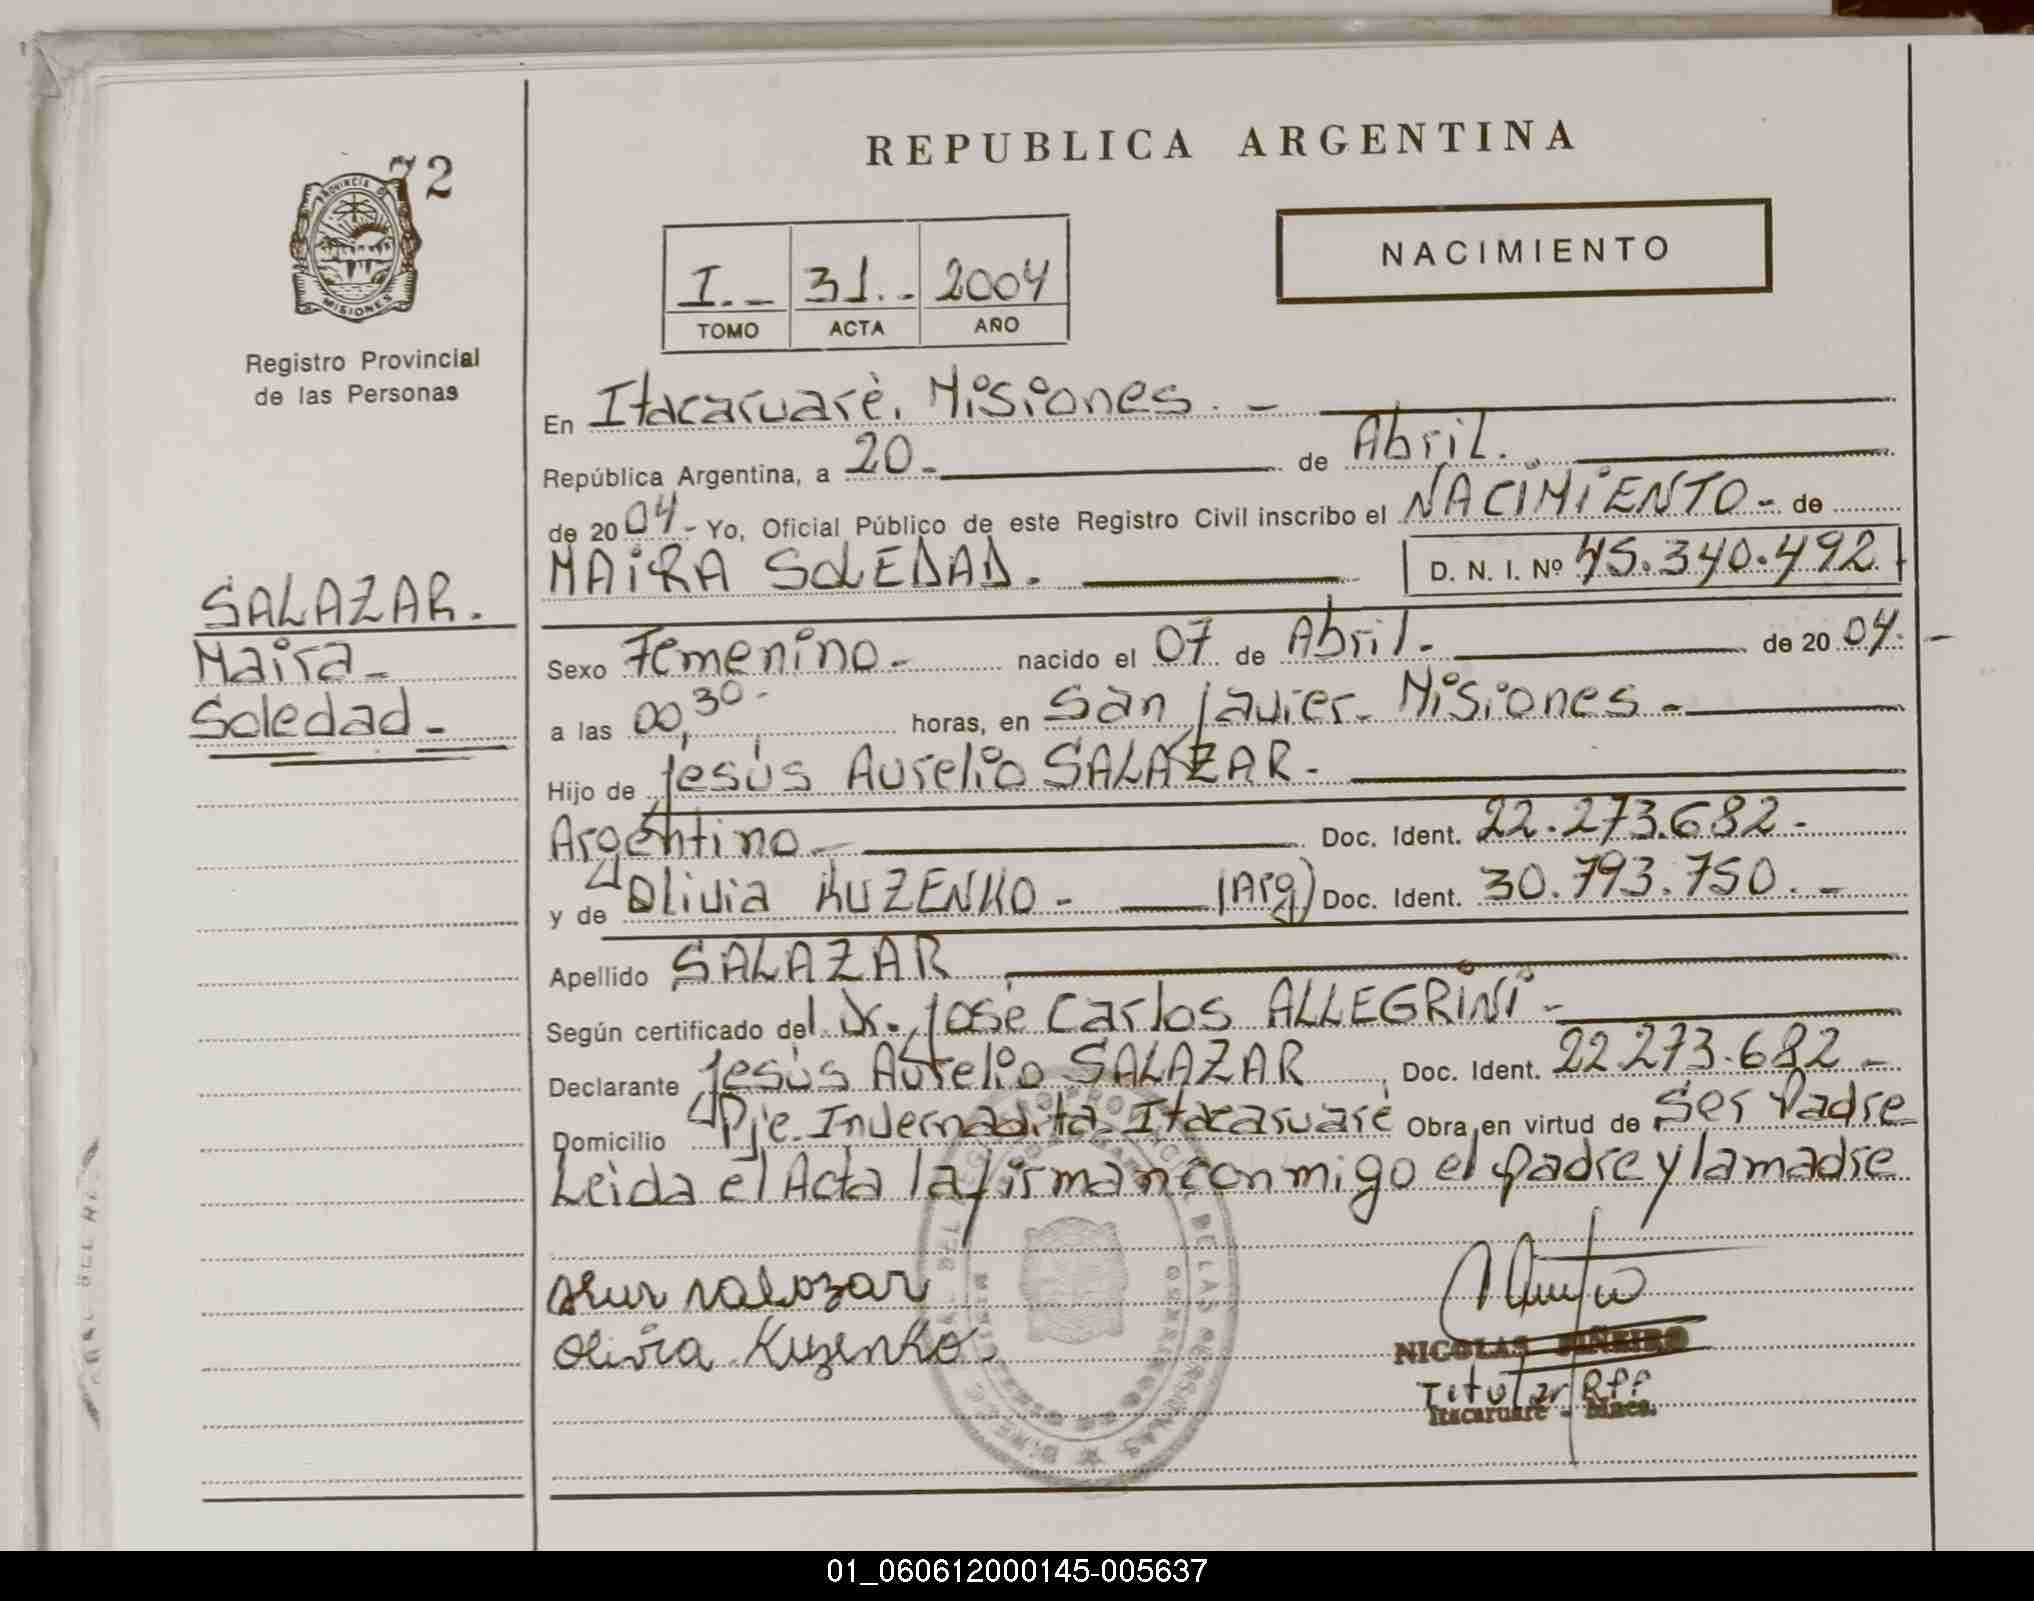 72
PROVINCIA D
MISIONES
Registro Provincial
de las Personas
SALAZAR.
Maira
Soledad
REPUBLICA ARGENTINA
NACIMIENTO
I. 31. 2004
TOMO ACTA AÑO
En Itacaruarè, Misiones.
República Argentina, a 20 de Abril.
de 2004 Yo, Oficial Público de este Registro Civil inscribo el NACIMIENTO de
MAIRA SOLEDAD. D. N. I. Nº 45.340.492
Sexo Femenino nacido el 07 de Abril de 2004
a las 00,30 horas, en San Javier Misiones
Hijo de Jesús Aurelio SALAZAR
Argentino Doc. Ident. 22.273.682
y de Olivia KUZENKO (Arg) Doc. Ident. 30.793.750
Apellido SALAZAR
Según certificado del Dr. José Carlos ALLEGRINI
Declarante Jesús Aurelio SALAZAR Doc. Ident. 22.273.682
Domicilio Pje. Invernadita Itacaruaré Obra en virtud de Ser Padre
Leida el Acta la firman conmigo el padre y la madre
salazar
Olivia Kuzenko
NICOLAS PIÑEIRO
Titular RPP
Itacaruare - Mnes.
DE LAS PERSONAS
01_060612000145-005637